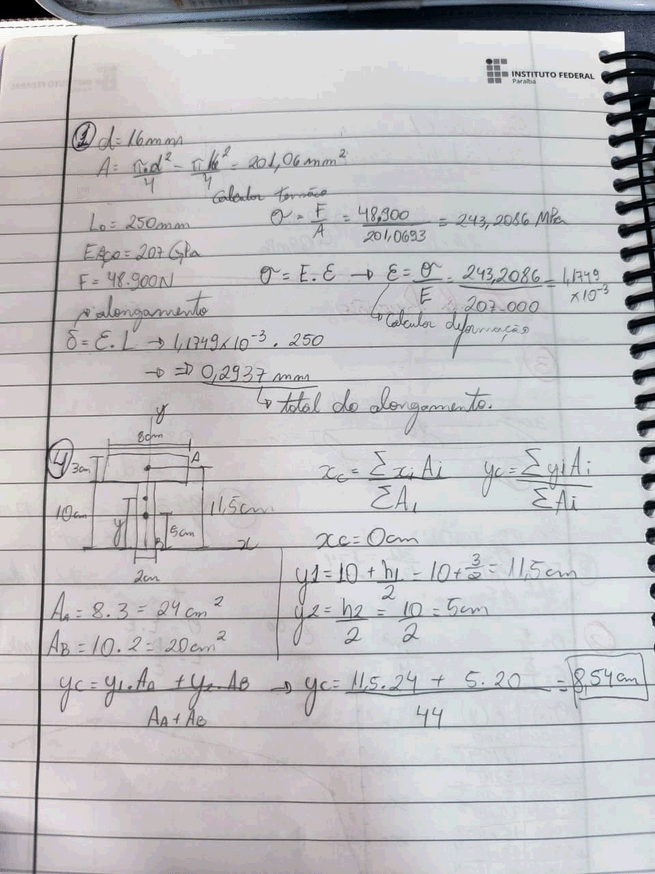 INSTITUTO FEDERAL
Paraíba
1 d = 16mm
A = π.d²/4 = π16²/4 = 201,06 mm²
Calcular tensão
L₀ = 250mm
σ = F/A = 48.900/201,0693 = 243,2086 MPa
Eaço = 207 GPa
F = 48.900N
σ = E.ε → ε = σ/E = 243,2086/207.000 = 1,1749 × 10⁻³
↳ Calcular deformação
alongamento
δ = ε.L → 1,1749×10⁻³ . 250
→ ⇒ 0,2937 mm
↳ total do alongamento.
4
y
8cm
A
3cm
10cm
y
5cm
11,5cm
B
x
2cm
xc = Σxi Ai/ΣAi yc = Σyi Ai/ΣAi
xc = 0cm
y1 = 10 + h1/2 = 10 + 3/2 = 11,5cm
y2 = h2/2 = 10/2 = 5cm
AA = 8.3 = 24 cm²
AB = 10.2 = 20cm²
yc = y1.AA + y2.AB/AA + AB → yc = 11,5.24 + 5.20/44 = 8,54cm